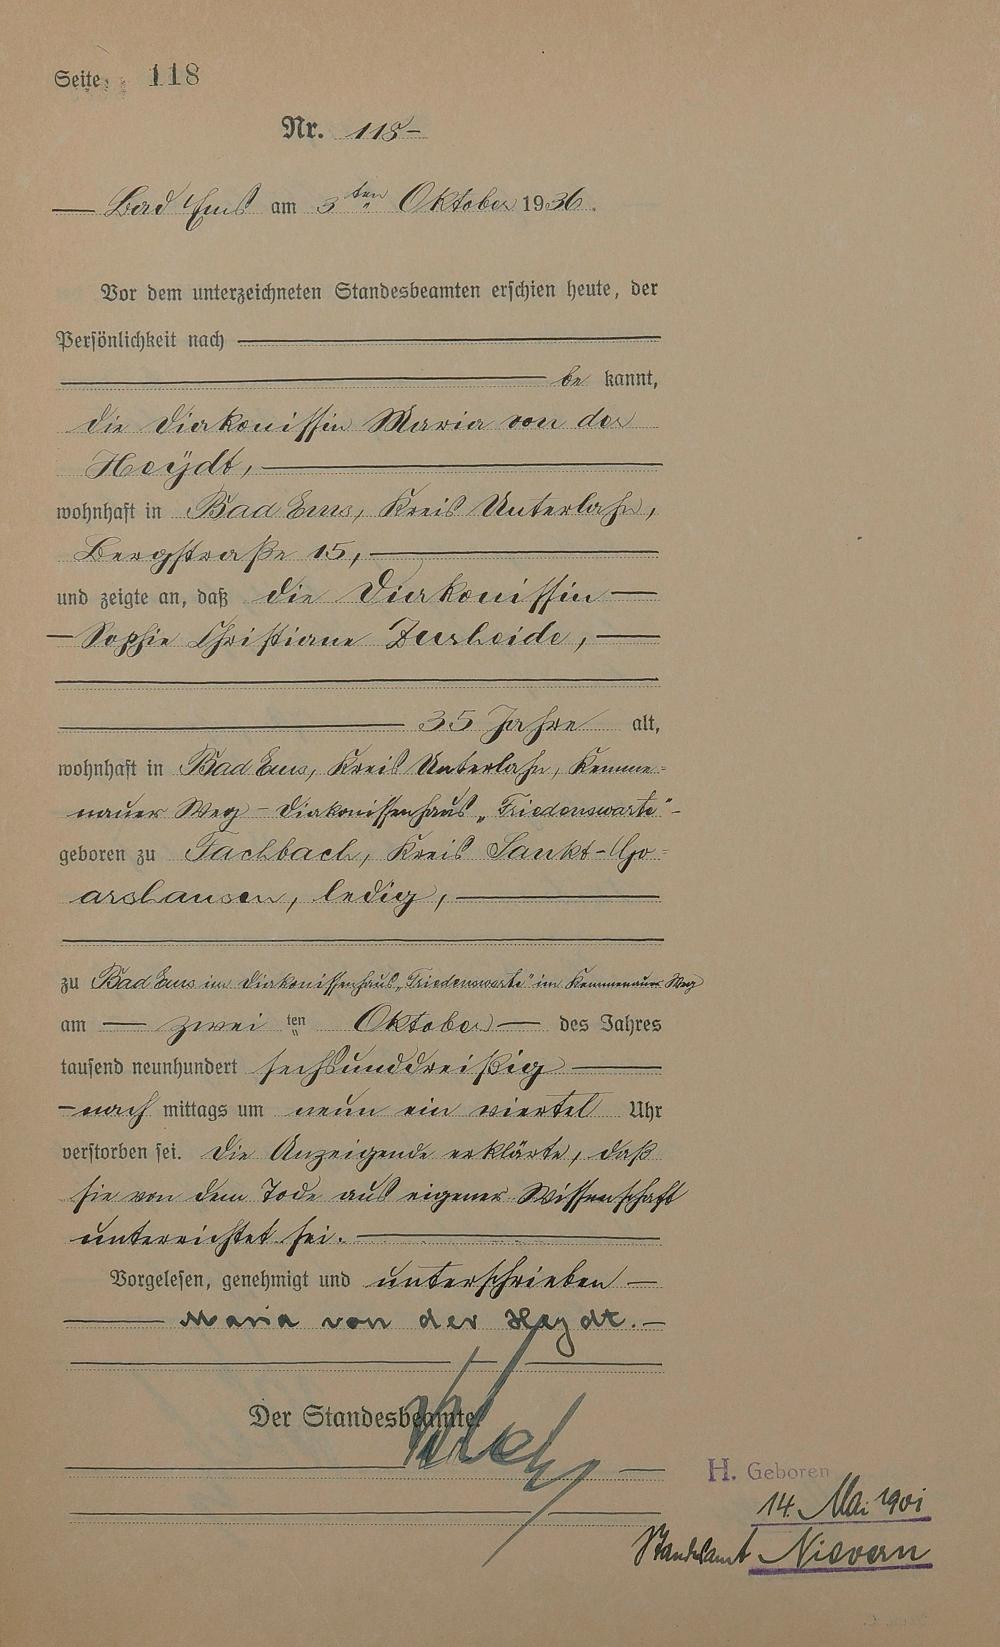 Seite 118
Nr. 118
Bad Ems am 3ten Oktober 1936.
Vor dem unterzeichneten Standesbeamten erschien heute, der
Persönlichkeit nach
be kannt,
die Diakonissin Maria von der
Heÿdt,
wohnhaft in Bad Ems, Kreis Unterlahn,
Bergstraße 15,
und zeigte an, daß die Diakonissin
Sophie Christiane Zurheide,
35 Jahre alt,
wohnhaft in Bad Ems, Kreis Unterlahn, Kemme-
nauer Weg - Diakonissenhaus „Friedenswarte" -
geboren zu Fachbach, Kreis Sankt-Go-
arshausen, ledig,
zu Bad Ems im Diakonissenhaus „Friedenswarte" im Kemmenauer Weg
am zwei ten Oktober des Jahres
tausend neunhundert sechsunddreißig
nach mittags um neun ein viertel Uhr
verstorben sei. Die Anzeigende erklärte, daß
sie von dem Tode aus eigener Wissenschaft
unterrichtet sei.
Vorgelesen, genehmigt und unterschrieben
Maria von der Heydt.
Der Standesbeamte
H. Geboren
14. Mai 1901
Standesamt Nievern